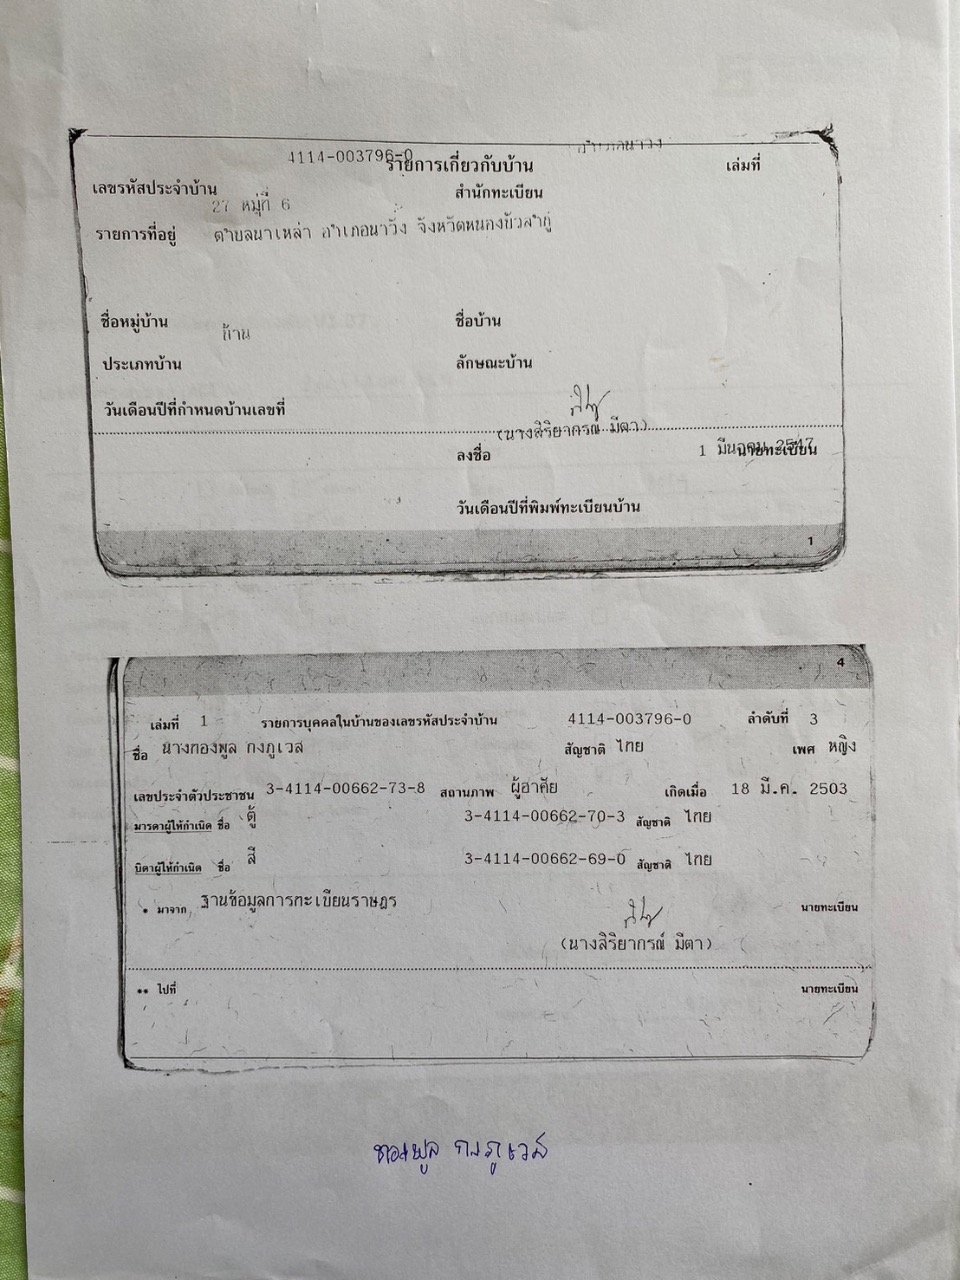 4114-003796-0 อำเภอนาวัง
รายการเกี่ยวกับบ้าน เล่มที่
เลขรหัสประจำบ้าน สำนักทะเบียน
27 หมู่ที่ 6
รายการที่อยู่ ตำบลนาเหล่า อำเภอนาวัง จังหวัดหนองบัวลำภู
ชื่อหมู่บ้าน ชื่อบ้าน
บ้าน
ประเภทบ้าน ลักษณะบ้าน
วันเดือนปีที่กำหนดบ้านเลขที่
(นางสิริยากรณ์ มีตา)
ลงชื่อ นายทะเบียน
1 มีนาคม 2547
วันเดือนปีที่พิมพ์ทะเบียนบ้าน
1
4
เล่มที่ 1 รายการบุคคลในบ้านของเลขรหัสประจำบ้าน 4114-003796-0 ลำดับที่ 3
ชื่อ นางทองพูล กงภูเวส สัญชาติ ไทย เพศ หญิง
เลขประจำตัวประชาชน 3-4114-00662-73-8 สถานภาพ ผู้อาศัย เกิดเมื่อ 18 มี.ค. 2503
มารดาผู้ให้กำเนิด ชื่อ ตู้ 3-4114-00662-70-3 สัญชาติ ไทย
บิดาผู้ให้กำเนิด ชื่อ สี 3-4114-00662-69-0 สัญชาติ ไทย
* มาจาก ฐานข้อมูลการทะเบียนราษฎร นายทะเบียน
(นางสิริยากรณ์ มีตา)
** ไปที่ นายทะเบียน
ทองพูล กงภูเวส